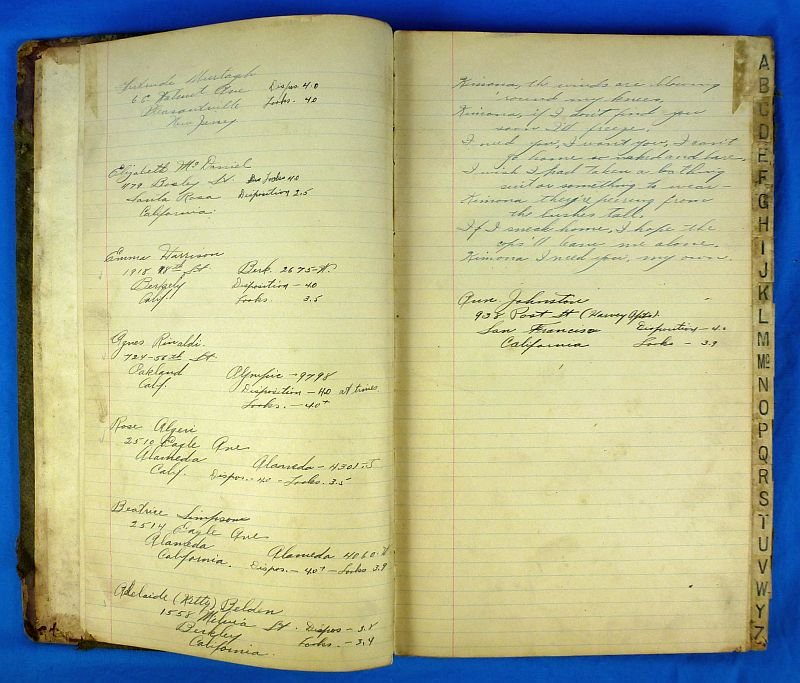 Gertrude Murtagh Dispos 4.0
65 Walnut Ave Looks. 40
Pleasantville
New Jersey
Elizabeth Mc Daniel
479 Bosley St. Looks 40
Santa Rosa Disposition 2.5
California.
Emma Harrison
1918 98th St Berk. 2675-W.
Berkely Disposition - 40
Calif. Looks. 3.5
Agnes Rinaldi.
724-56th St.
Oakland Olympic - 9798
Calif. Disposition - 40 at times.
Looks. - 40+
Rose Algeri
2510 Eagle Ave
Alameda Alameda - 4301-J
Calif. Dispos. - 40 - Looks. 3.5
Beatrice Simpson
2514 Eagle Ave
Alameda Alameda 4060-W
California. Dispos. - 40+ - Looks 3.9
Adelaide (Kitty) Belden
1558 St. Dispos - 3.8
Berkley Looks. - 3.4
California.
Kimona, the winds are blowing
'round my knees,
Kimona, if I don't find you
soon I'll freeze.
I need you, I want you, I can't
go home so naked and bare,
I wish I had taken a bathing
suit or something to wear -
Kimona they're peering from
the bushes tall.
If I sneak home, I hope the
cops'll leave me alone.
Kimona I need you, my own.
Ann Johnston
938 Post St (Harvey Apts).
San Francisco Disposition - 4.
California Looks - 3.9
A
B
C
D
E
F
G
H
I
J
K
L
M
Mc
N
O
P
Q
R
S
T
U
V
W
Y
Z